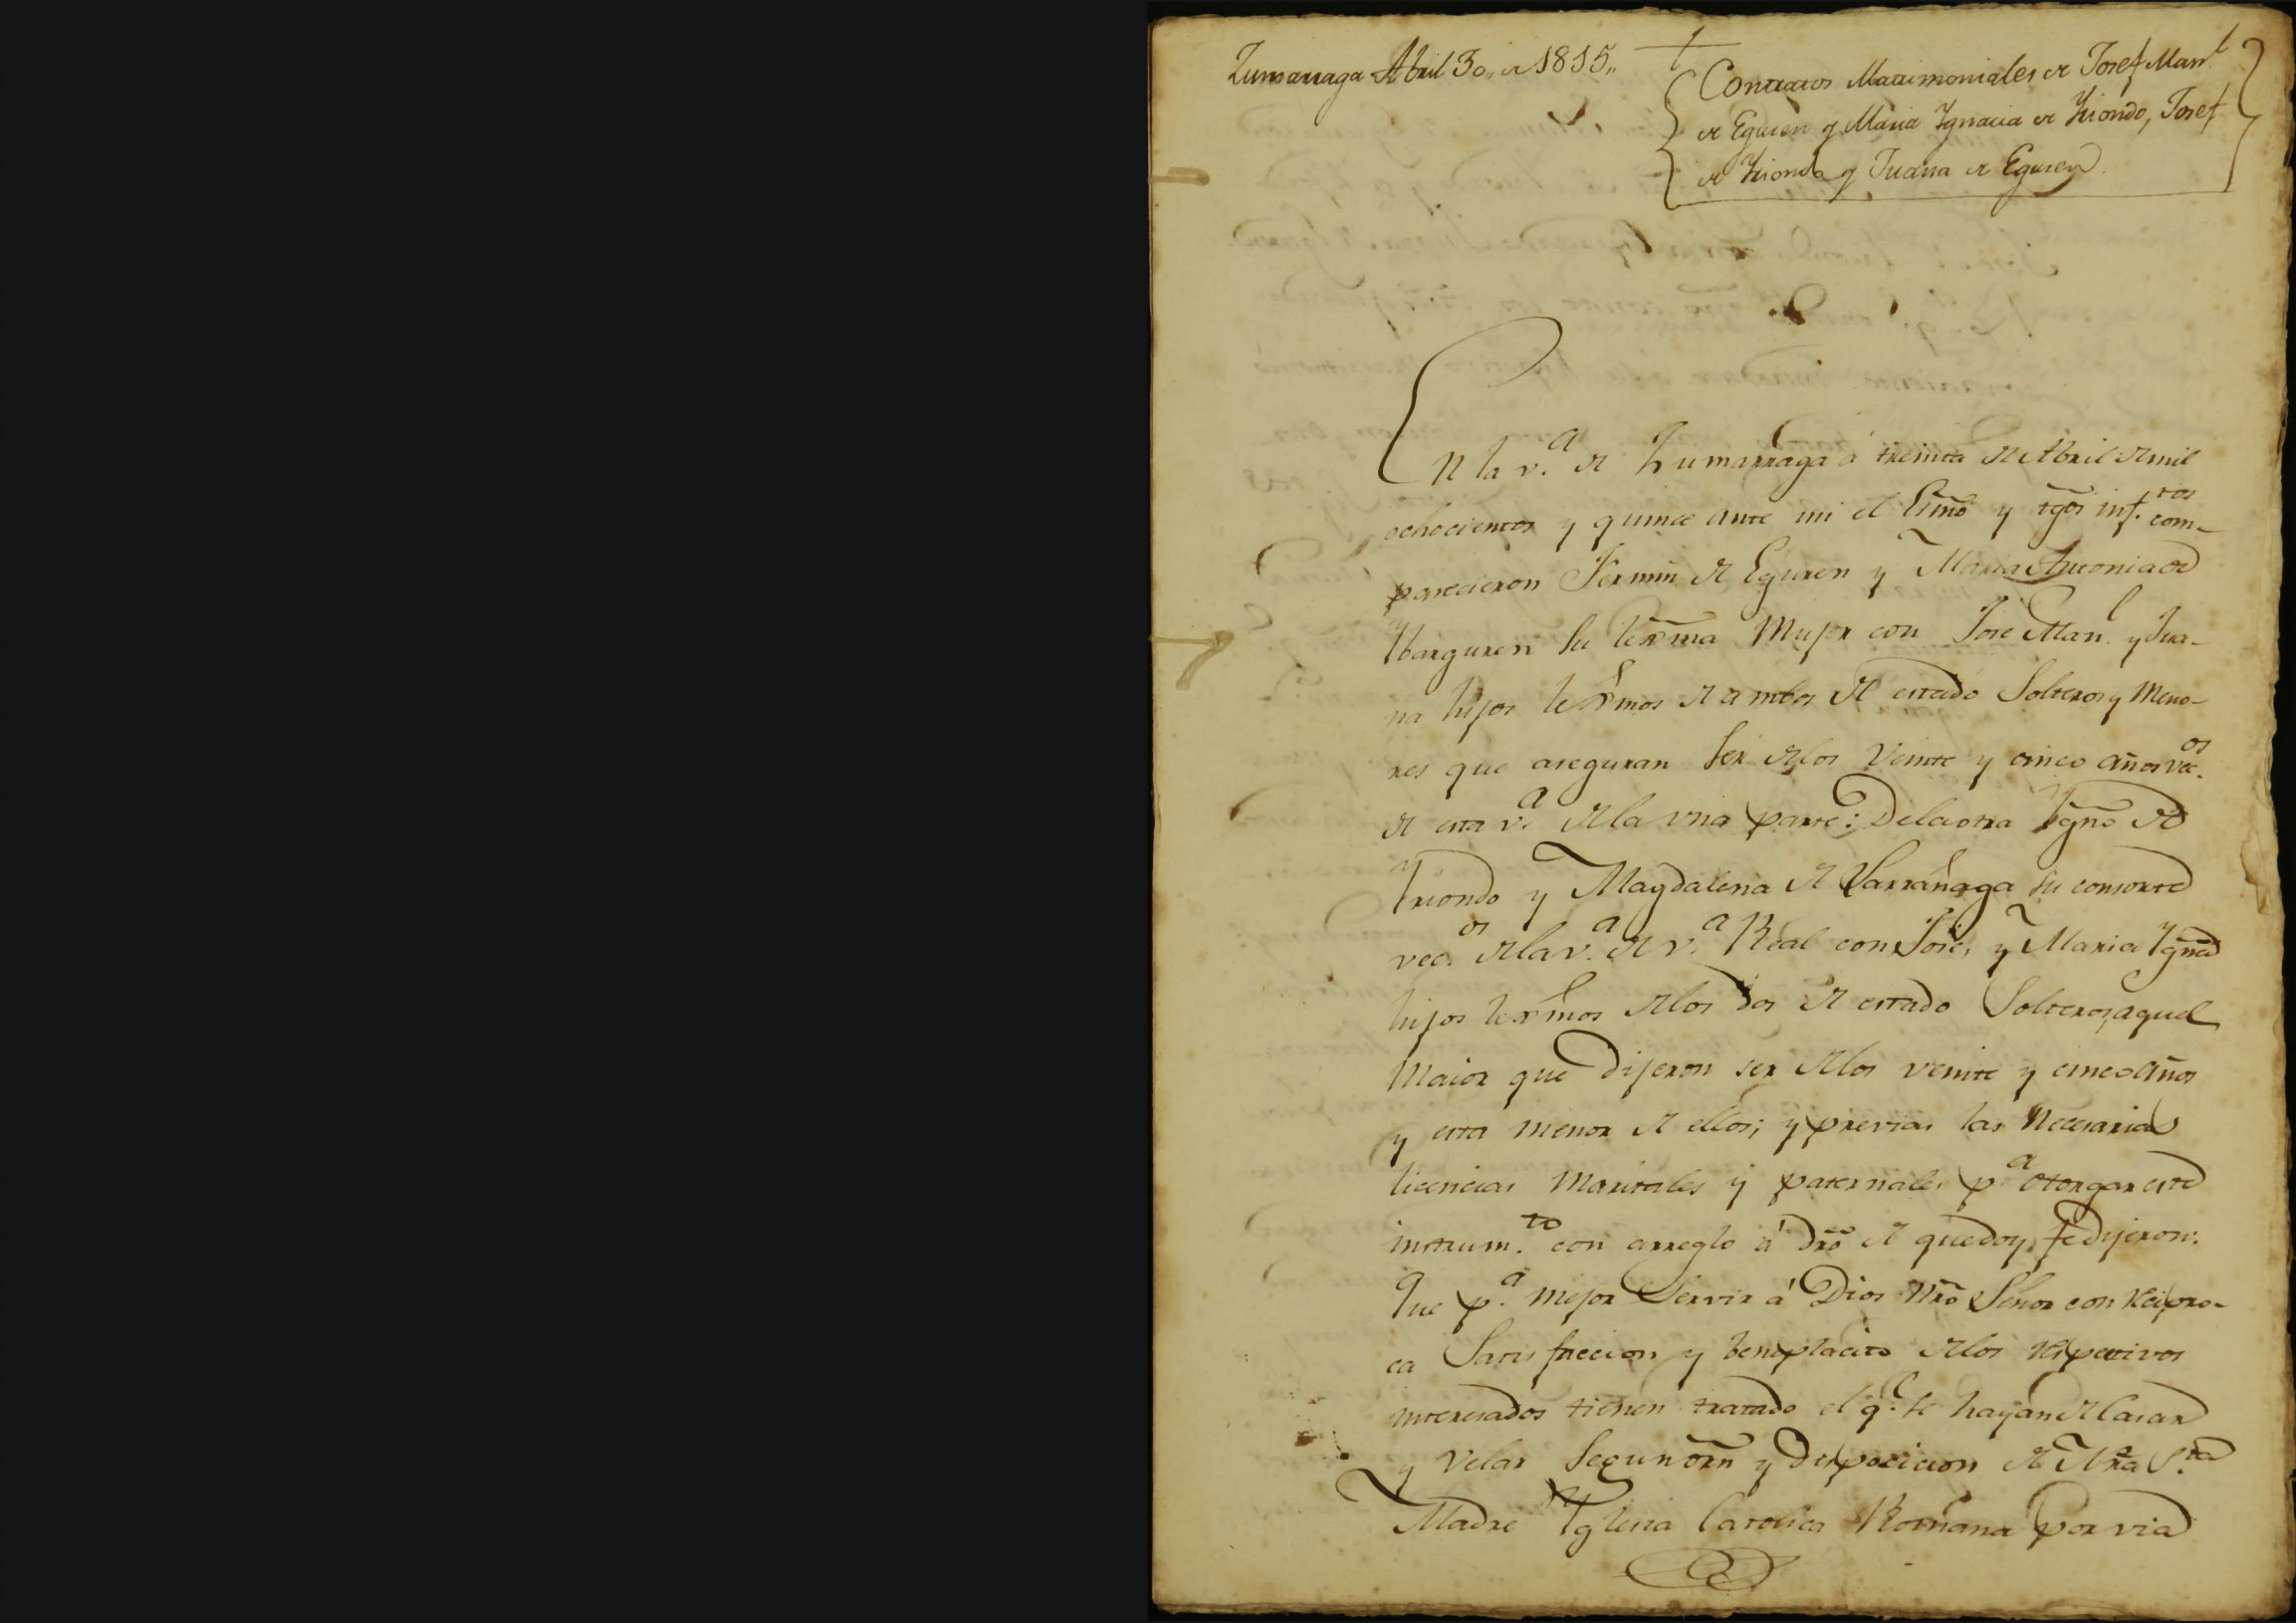 Zumarraga Abril 30,, de 1815,,
Contratos Matrimoniales de Josef Man.l
de Eguren y Maria Ygnacia de Yriondo, Josef
de Yriondo y Juana de Eguren
En la v.a de Zumarraga á treinta de Abril de mil
ochocientos y quince ante mi el Essno y tgos inf.tos com-
parecieron Fermin de Eguren y Maria Antonia de
Ybarguren su lexma Mujer con Jose Man.l y Jua-
na hijos lexmos de ambos de estado Solteros y meno-
res que aseguran ser de los veinte y cinco años vec.os
de esta v.a de la una parte: De la otra Ygno de
Yriondo y Magdalena de Larrañaga su consorte
vec.os de la v.a de v.a Real con José, y Maria Ygna
hijos lexmos de los dos de estado Solteros, aquel
maior que dijeron ser de los veinte y cinco años
y esta menor de ellos; y previas las necesarias
licencias maritales y paternales p.a otorgar este
instrum.to con arreglo á dro de que doy fe dijeron:
Que p.a mejor servir á Dios nro Señor con recipro-
ca Satisfaccion y beneplacito de los respectivos
interesados tienen tratado el q.e se hayan de casar
y velar segun orn y disposicion de Nra S.ta
Madre Yglesia Catolica Romana por via